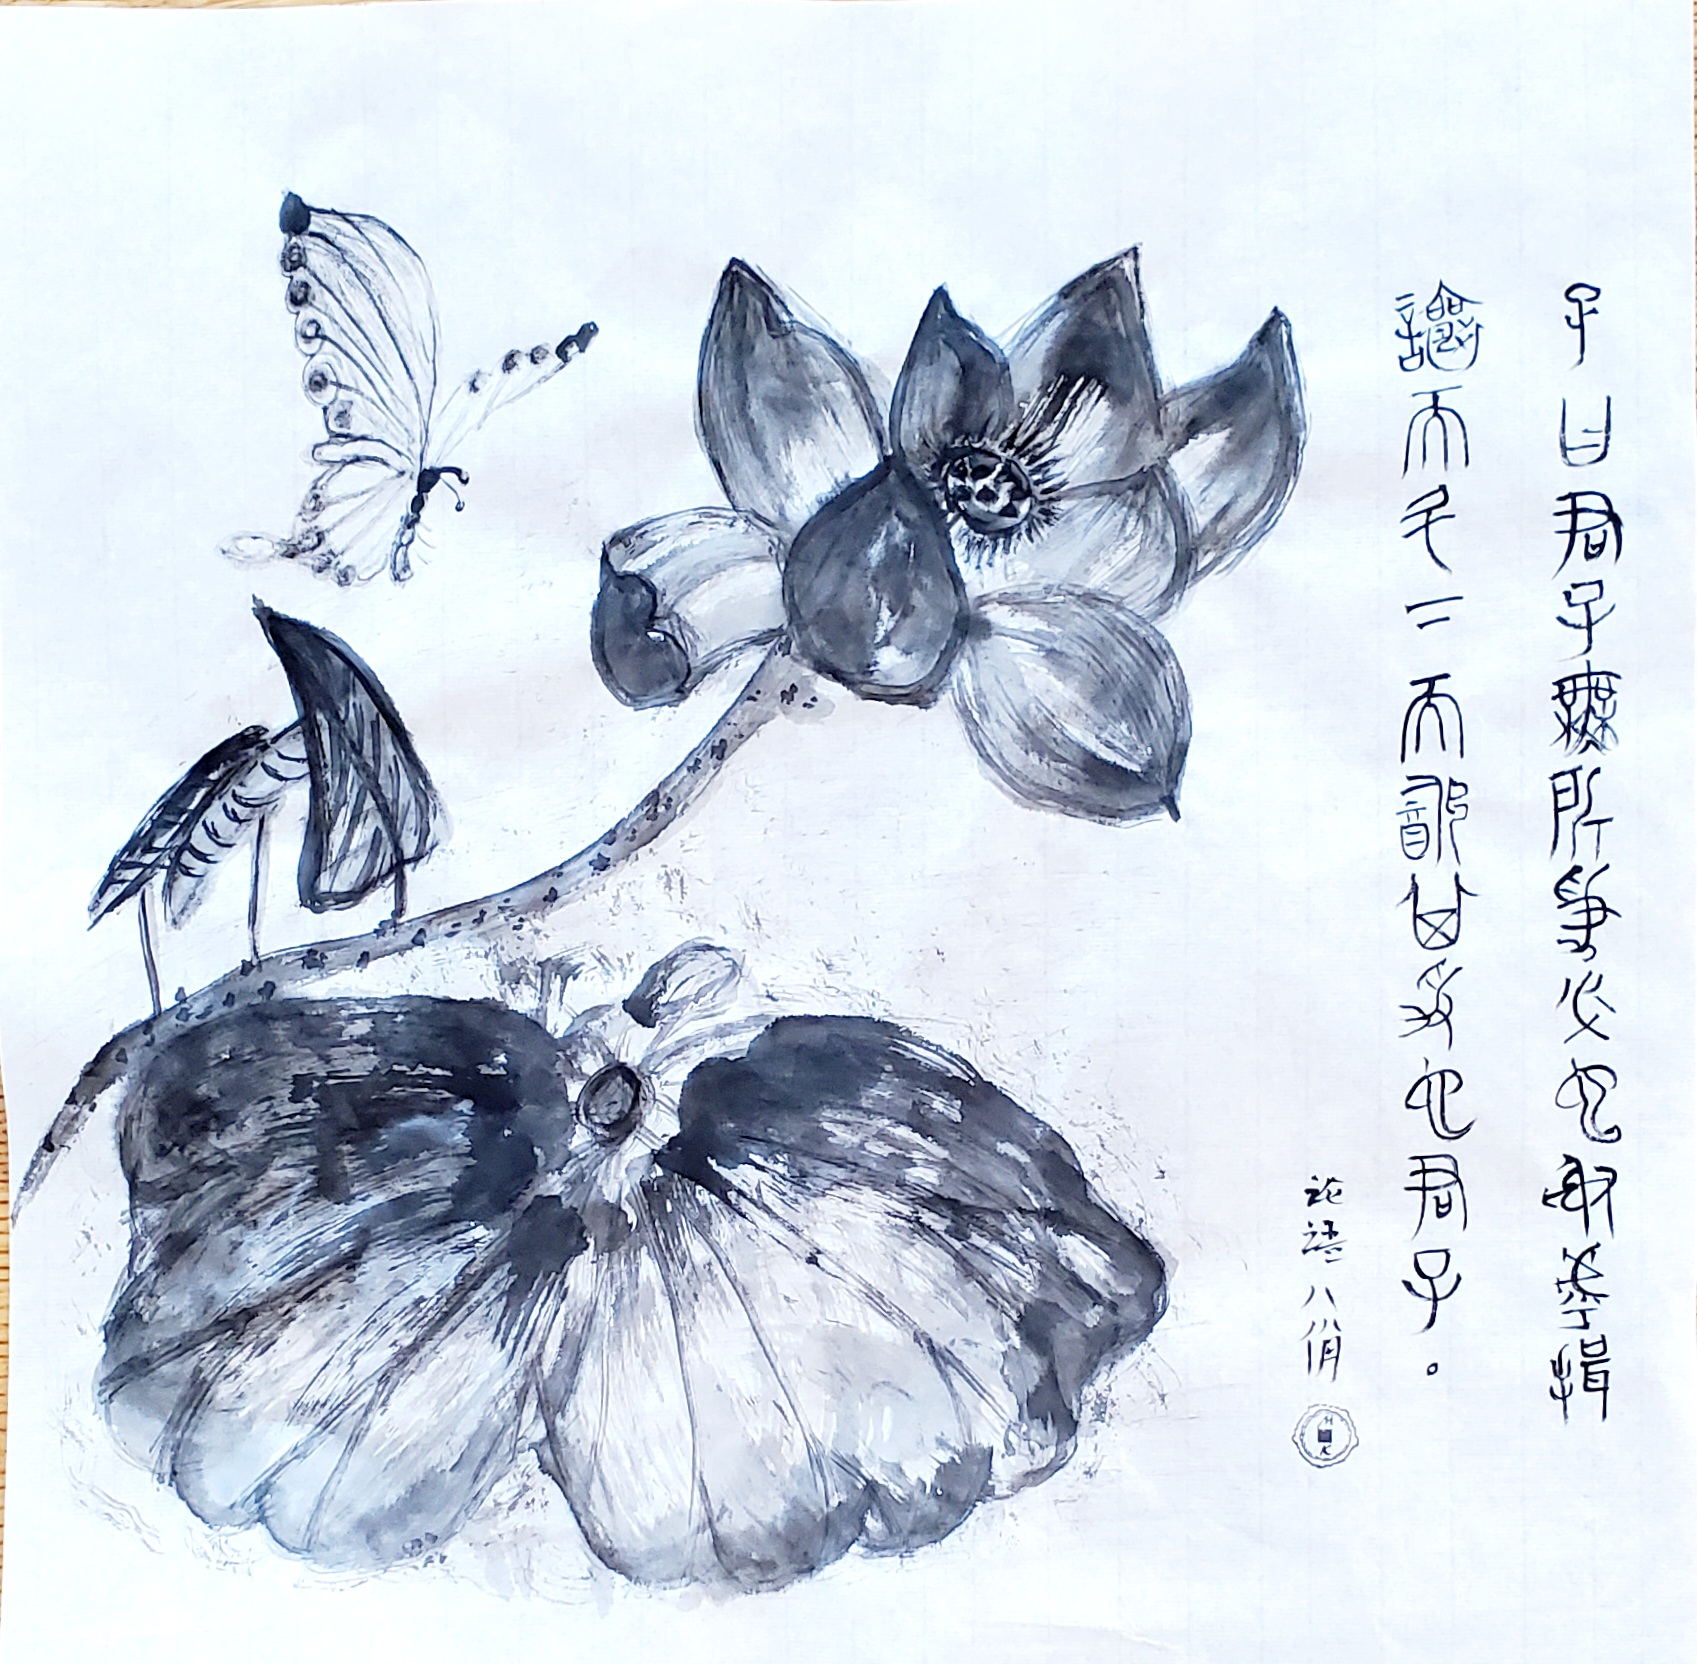 子曰君子無所爭必也射乎揖
讓而升下而飲其爭也君子。
論語八佾